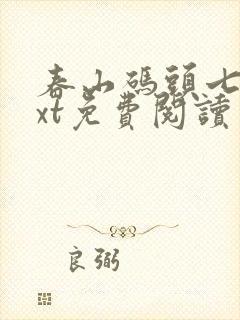 春山碼頭七
xt免費閱讀
良弼